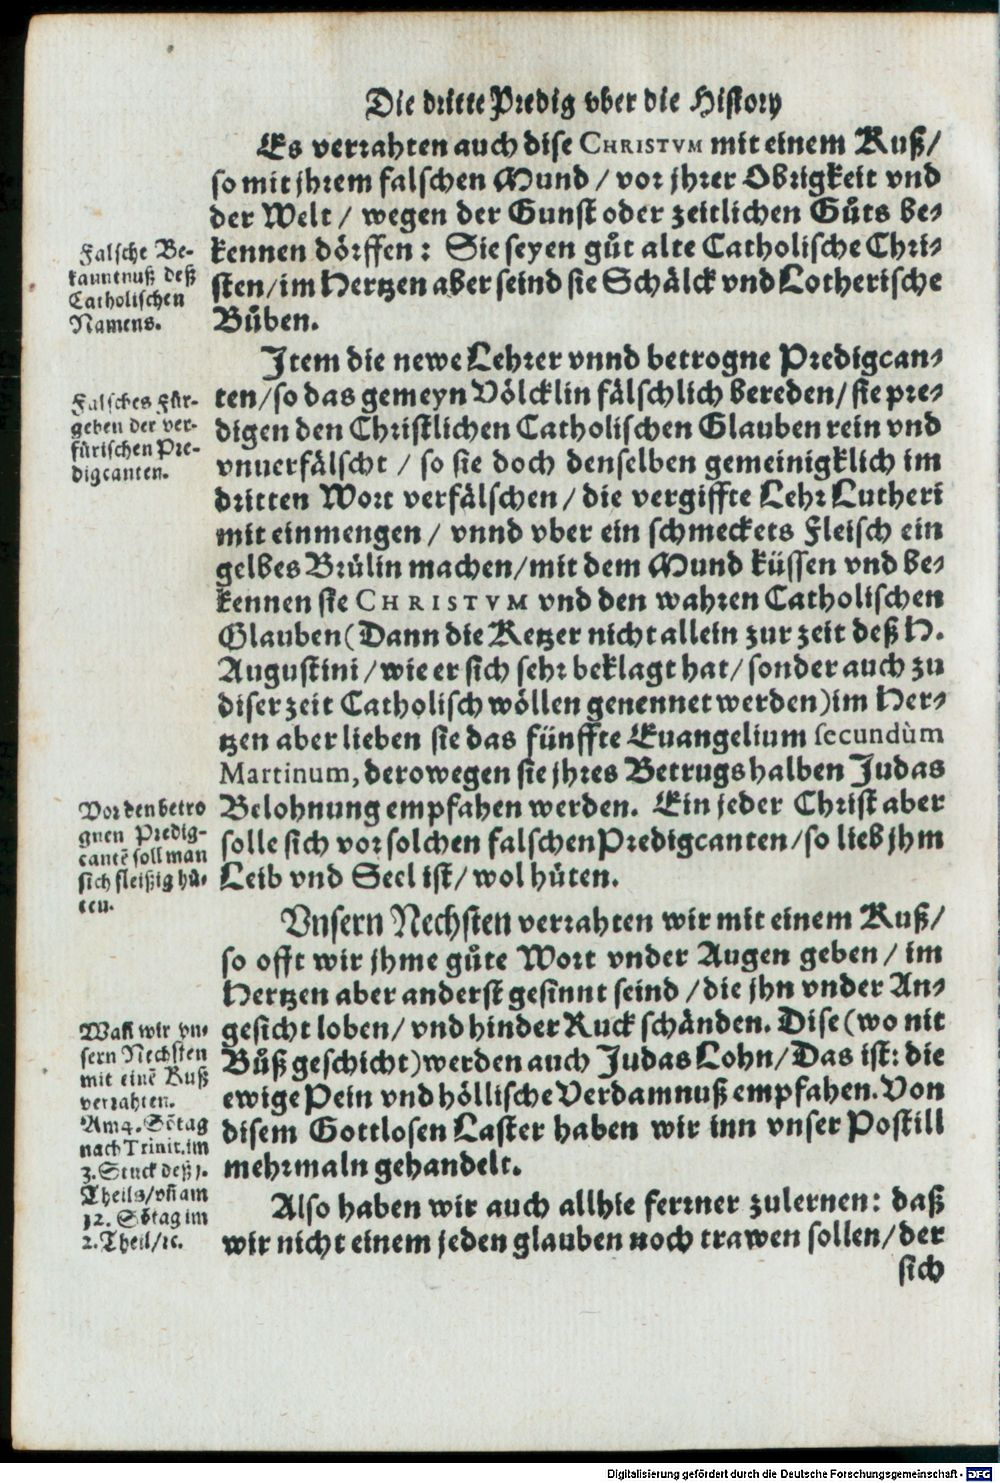 Die dritte Predig vber die History
Es verrahten auch dise CHRISTVM mit einem Kuß/
so mit jhrem falschen Mund / vor jhrer Obrigkeit vnd
der Welt / wegen der Gunst oder zeitlichen Gůts be-
kennen dörffen: Sie seyen gůt alte Catholische Chri-
sten/im Hertzen aber seind sie Schälck vnd Lotherische
Bůben.
Falsche Be-
kanntnuß deß
Catholischen
Namens.
Item die newe Lehrer vnnd betrogne Predigcan-
ten/so das gemeyn Völcklin fälschlich bereden/sie pre-
digen den Christlichen Catholischen Glauben rein vnd
vnuerfälscht / so sie doch denselben gemeinigklich im
dritten Wort verfälschen/die vergiffte Lehr Lutheri
mit einmengen / vnnd vber ein schmeckets Fleisch ein
gelbes Brülin machen/mit dem Mund küssen vnd be-
kennen sie CHRISTVM vnd den wahren Catholischen
Glauben(Dann die Ketzer nicht allein zur zeit deß H.
Augustini/wie er sich sehr beklagt hat/sonder auch zu
diser zeit Catholisch wöllen genennet werden)im Her-
tzen aber lieben sie das fünffte Euangelium secundùm
Martinum, derowegen sie jhres Betrugs halben Judas
Belohnung empfahen werden. Ein jeder Christ aber
solle sich vor solchen falschen Predigcanten/so lieb jhm
Leib vnd Seel ist/wol hüten.
Falsches Für-
geben der ver-
fürischen Pre-
digcanten.
Vor den betro
gnen Predig-
cantẽ soll man
sich fleißig hü-
ten.
Vnsern Nechsten verrahten wir mit einem Kuß/
so offt wir jhme gůte Wort vnder Augen geben / im
Hertzen aber anderst gesinnt seind /die jhn vnder An-
gesicht loben/ vnd hinder Ruck schänden. Dise (wo nit
Bůß geschicht)werden auch Judas Lohn/Das ist: die
ewige Pein vnd höllische Verdamnuß empfahen. Von
disem Gottlosen Laster haben wir inn vnser Postill
mehrmaln gehandelt.
Wañ wir vn-
sern Nechsten
mit einẽ Kuß
verrahten.
Am 4. Sõtag
nach Trinit. im
3. Stuck deß 1.
Theils/vñ am
12. Sõtag im
2. Theil/ꝛc.
Also haben wir auch allhie ferrner zulernen: daß
wir nicht einem jeden glauben noch trawen sollen/der
sich
Digitalisierung gefördert durch die Deutsche Forschungsgemeinschaft - DFG